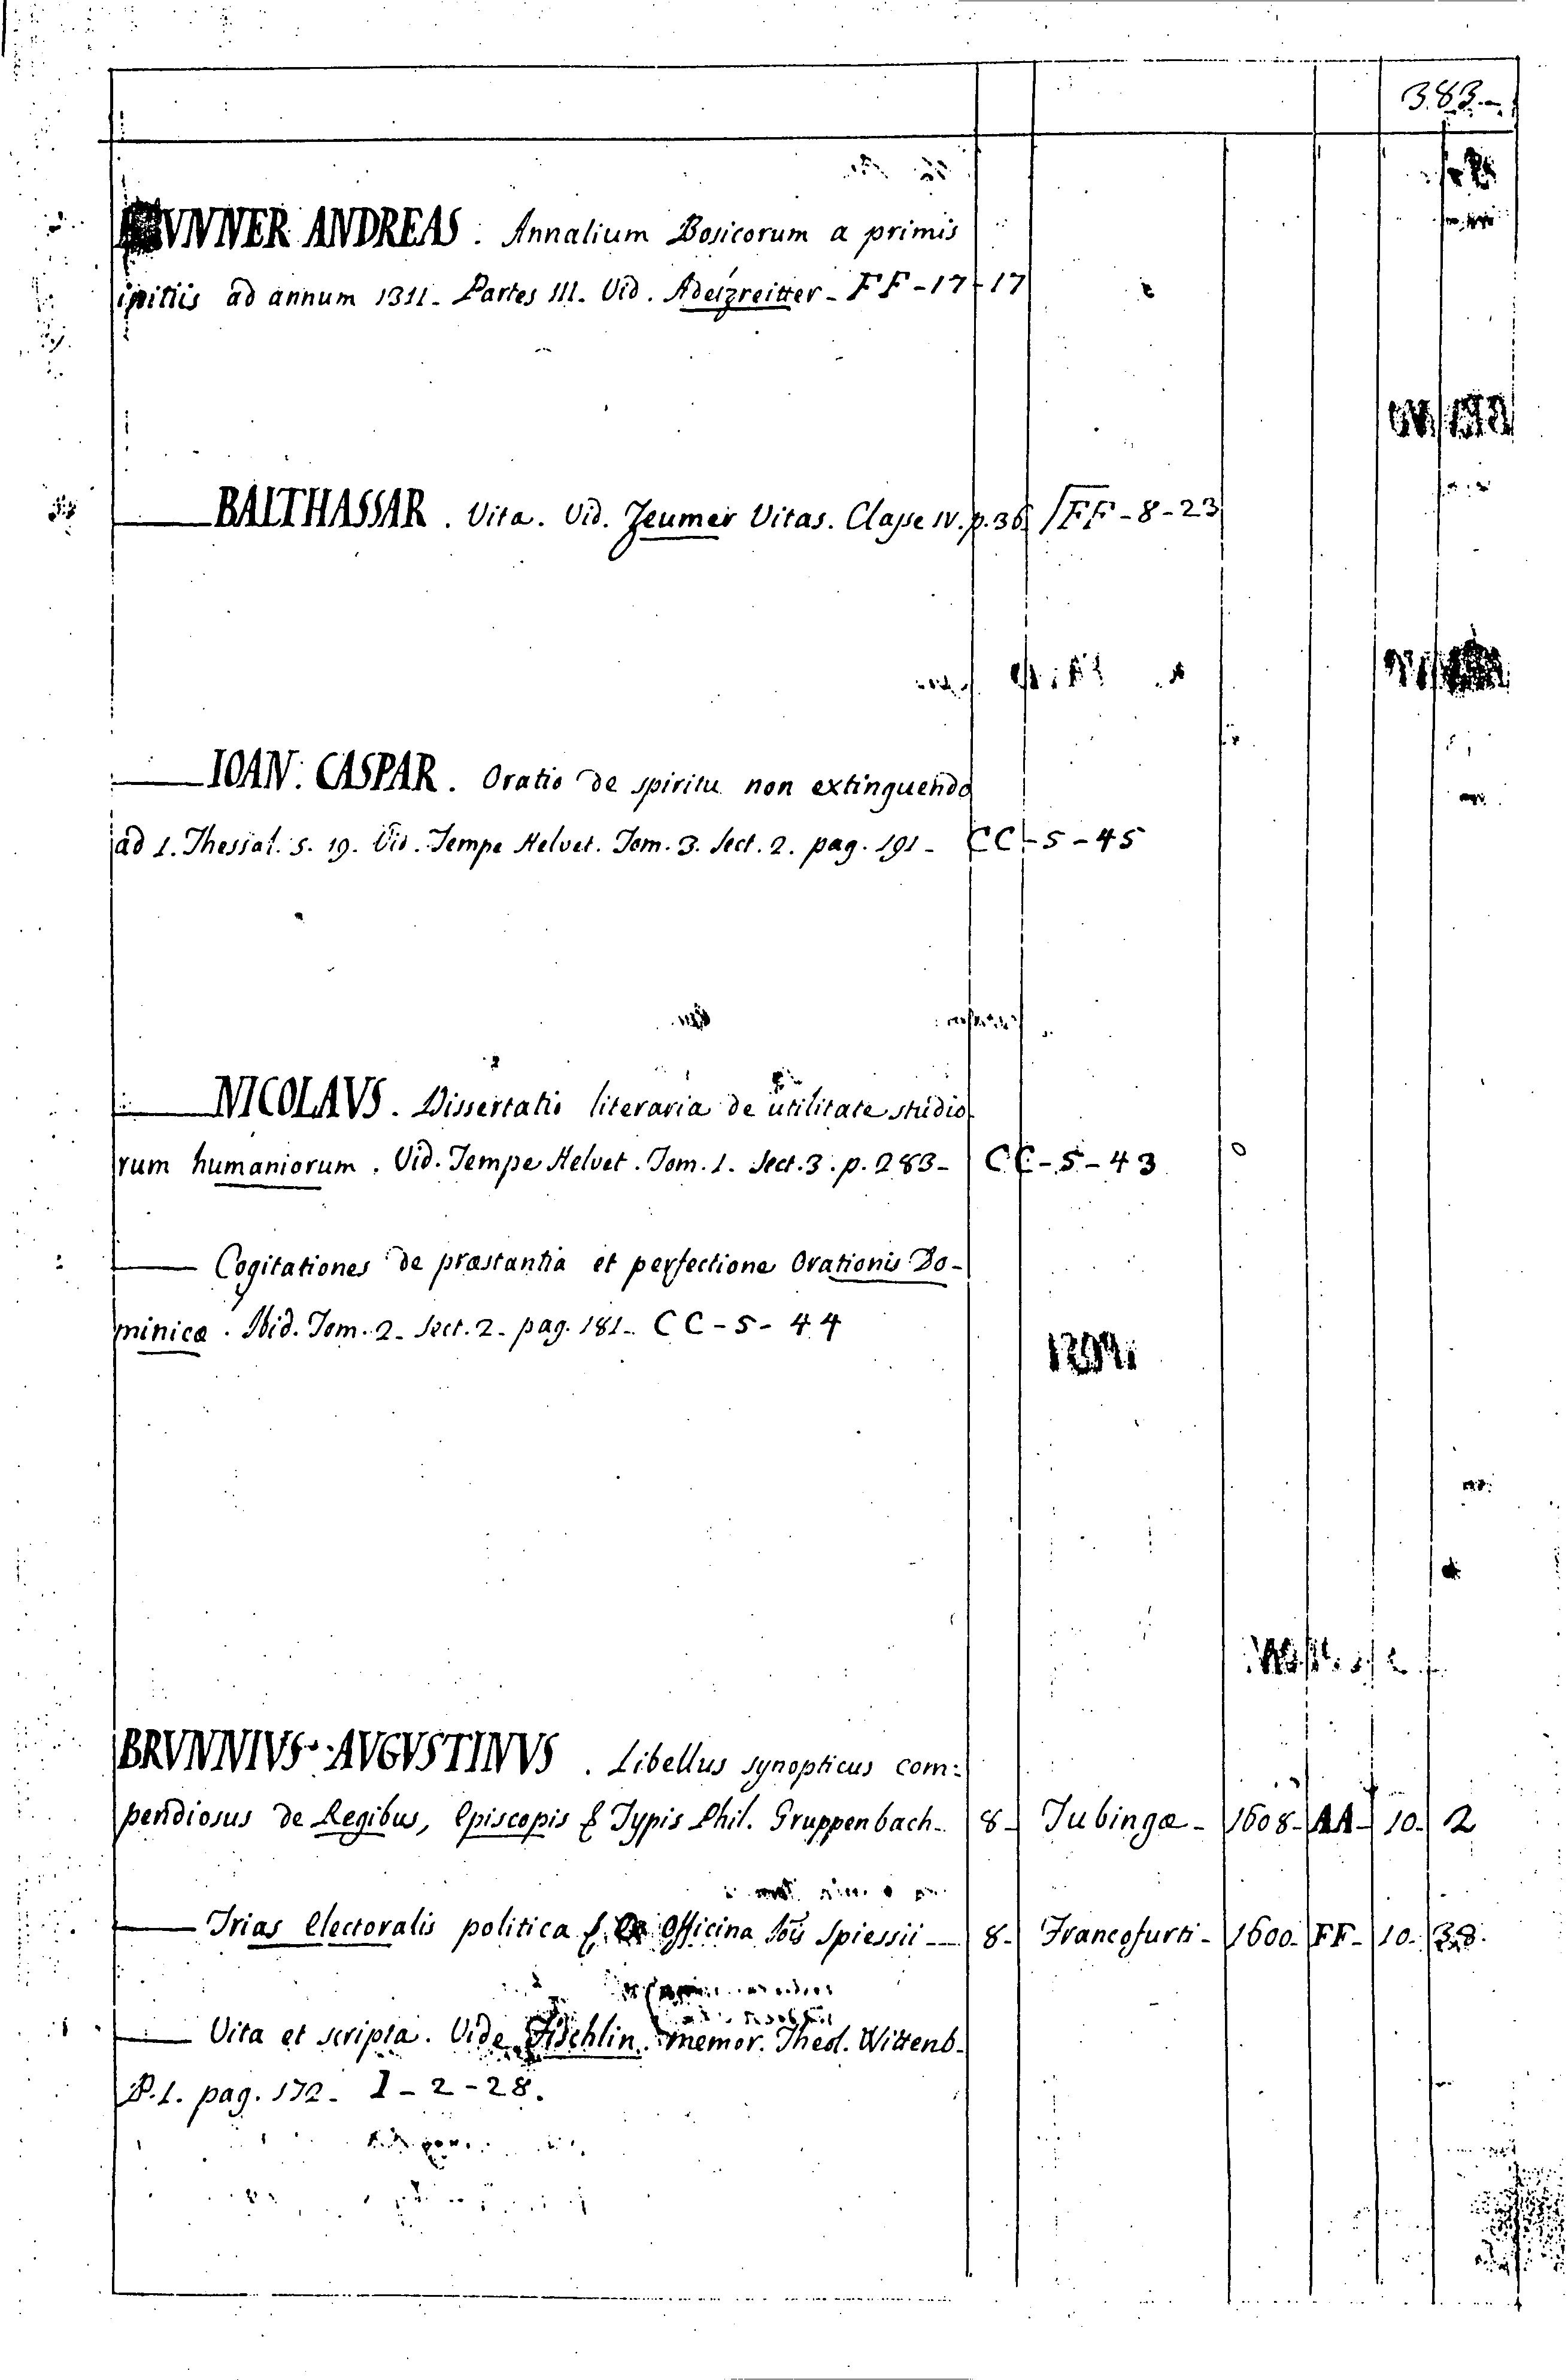 383.
BRVNNER ANDREAS. Annalium Boicorum a primis
initiis ad annum 1311. Partes III. Vid. Adelzreitter - FF - 17 - 17
—— BALTHASSAR. Vita. Vid. Zeumer Vitas. Classe IV. p. 36 / FF - 8 - 23
—— IOAN. CASPAR. Oratio de spiritu non extinguendo
ad 1. Thessal. 5. 19. Vid. Tempe Helvet. Tom. 3. Sect. 2. pag. 191 - CC - 5 - 45
—— NICOLAVS. Dissertatio literaria de utilitate studio
rum humaniorum. Vid. Tempe Helvet. Tom. 1. Sect. 3. p. 283 - CC - 5 - 43
—— Cogitationes de præstantia et perfectione Orationis Do-
minicæ. Ibid. Tom. 2. Sect. 2. pag. 181. CC - 5 - 44
BRVNNIVS AVGVSTINVS. Libellus synopticus com:
pendiosus de Regibus, Episcopis & Typis Phil. Gruppenbach. 8 - Tubingæ - 1608 - AA - 10 - 2
—— Trias Electoralis politica & Officina Iois Spiessii — 8 - Francofurti - 1600. FF - 10 - 38.
—— Vita et scripta. Vide Fischlin. memor. Theol. Wittenb.
P. 1. pag. 172. I - 2 - 28.